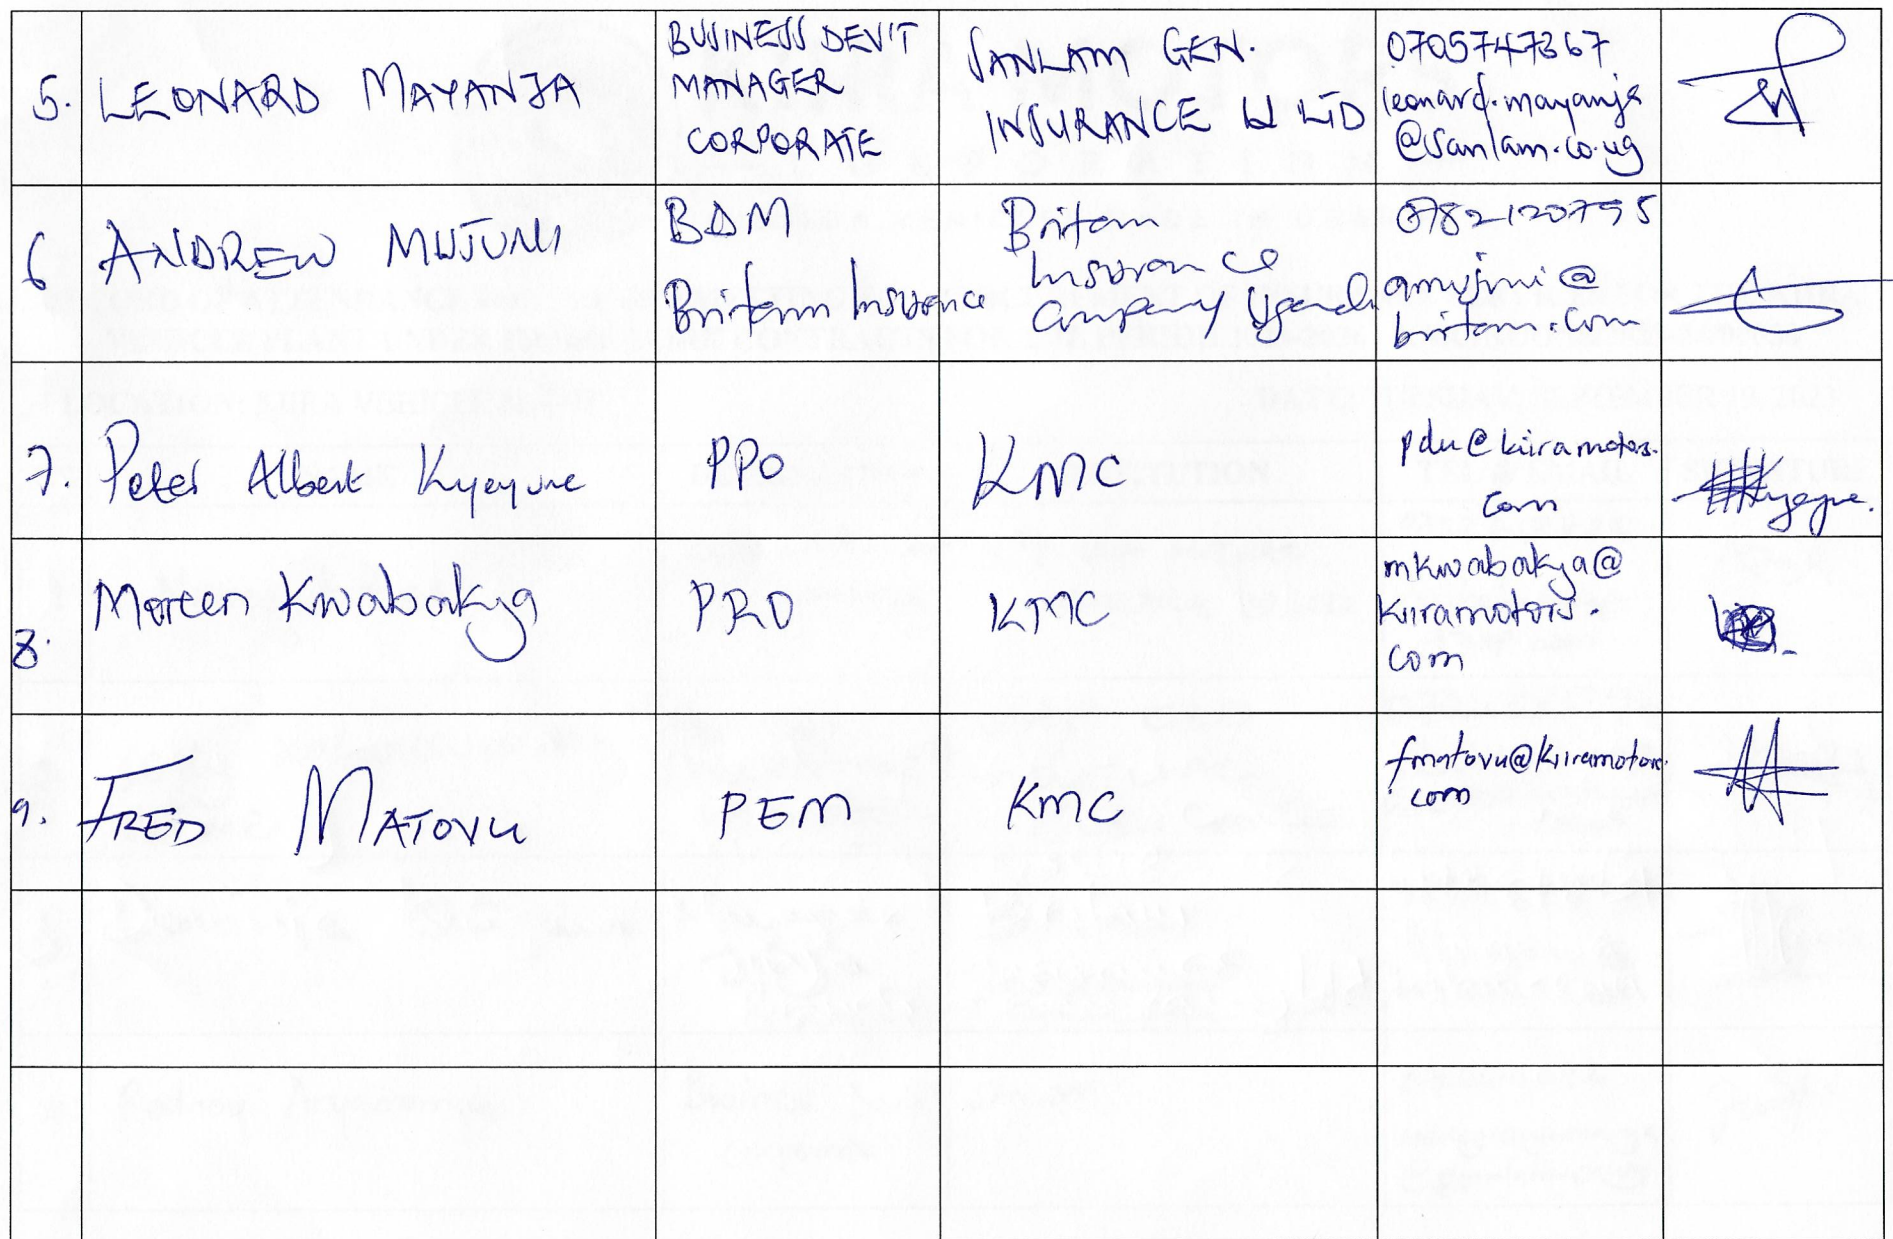 5. LEONARD MAYANJA
BUSINESS DEV'T
MANAGER
CORPORATE
SANLAM GEN.
INSURANCE U LTD
0705747367
leonard.mayanja
@sanlam.co.ug
6 ANDREW MUJUNI
BDM
Britam Insurance
Britam
Insurance
Company Uganda
0782120795
amujuni@
britam.com
7. Peter Albert Kyeyune
PPO
KMC
pdu@kiiramotors.
com
8. Moreen Kwabakya
PRO
KMC
mkwabakya@
kiiramotors.
com
9. FRED MATOVU
PEM
KMC
fmatovu@kiiramotors.
com